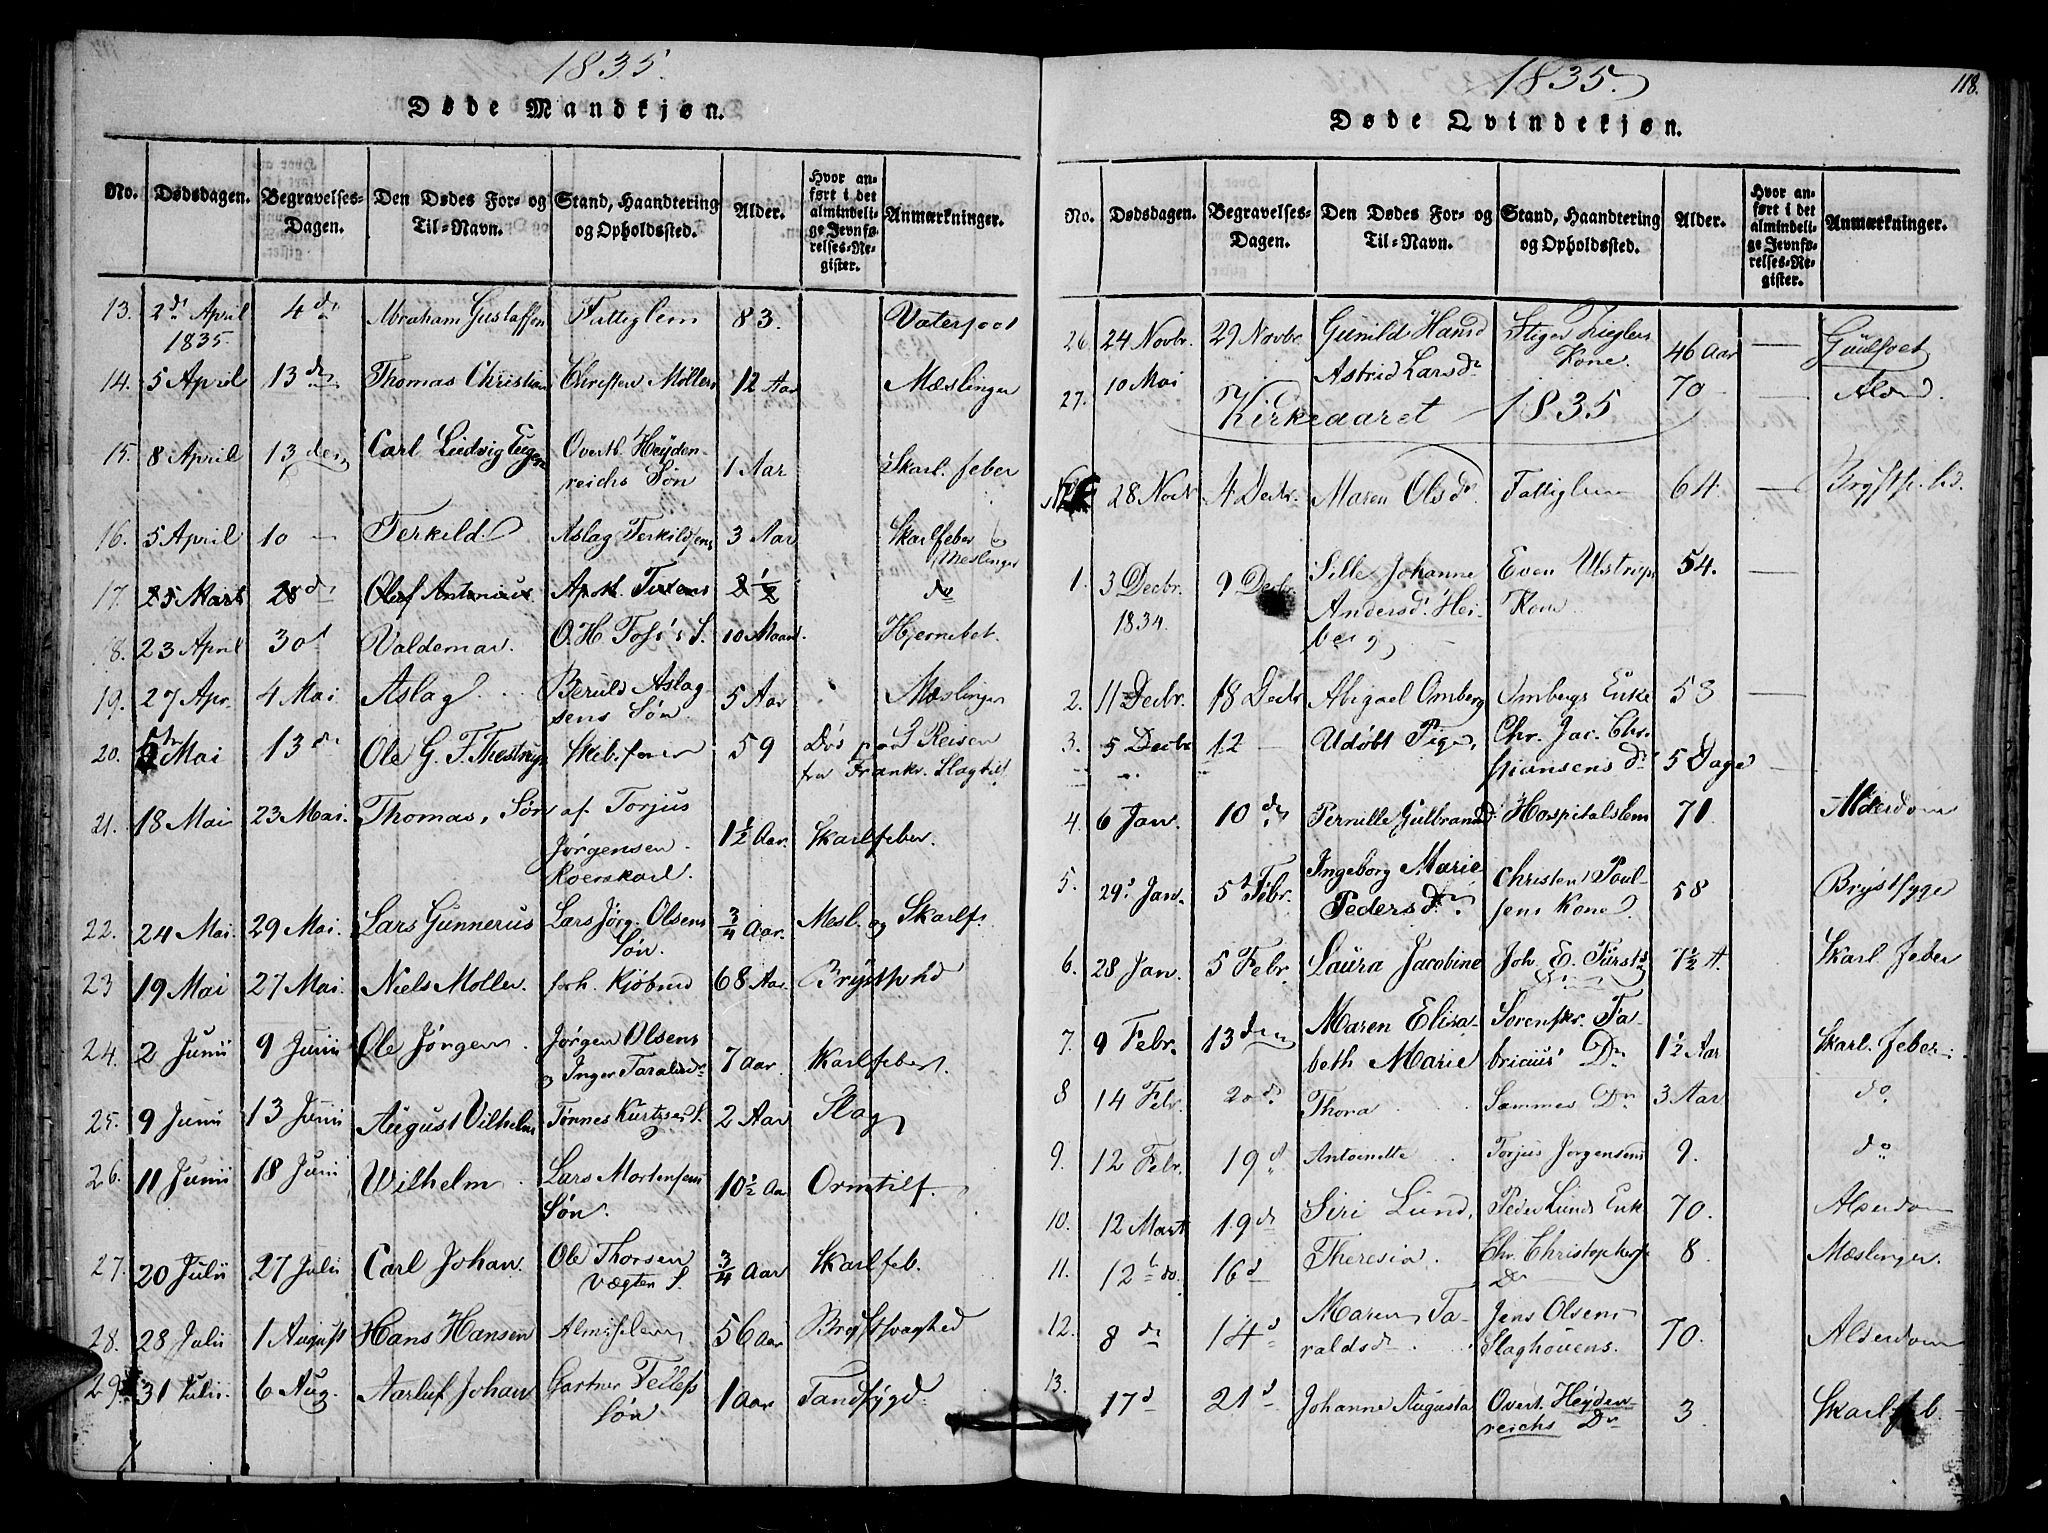 1835.
Døde Mandkjøn.
No. Dødsdagen. Begravelses-Dagen. Den Dødes For- og Til-Navn. Stand, Haandtering og Opholdssted. Alder. Hvor anført i det almindelige Jevnførelses-Register. Anmærkninger.
13. 2d April 1835 4d Abraham Gustaffen Fattiglem 83.
14. 5 April 13d Thomas Christian Christen Møllers 12 Aar Mæslinger
15. 8 April 13 den Carl Ludvig Eugen Overtl. Heydenreichs Søn 1 Aar Skarl. feber
16. 5 April 10 — Terkild Aslag Terkildsens 3 Aar Skarlfeber Meslinger
17. 25 Mart 28d Oluf Antonius Apoth. 2 1/2 do
18. 23 April 30 Valdemar. O. H. S. 10 Maan.
19. 27 Apr. 4 Mai Aslag Beruld Aslagsens Søn 5 Aar Mæslinger
20. Mai 13d Ole G. F. Thestrup Skibsfører 59 Død paa Reisen fra Frankr. Slagtilf.
21. 18 Mai 23 Mai. Thomas, Søn af Torjus Jørgensen Roerskarl. 1 1/2 Aar. Skarlfeber.
22. 24 Mai. 29 Mai. Lars Gunnerus Lars Jørg. Olsens Søn. 3/4 Aar. Mesl. og Skarlf.
23 19 Mai 27 Mai. Niels Møller. forh. Kjøbmd 68 Aar.
24. 2 Junii 9 Junii Ole Jørgen. Jørgen Olsens og Inger Taraldsdr 7 Aar. Skarlfeber.
25. 9 Junii 13 Junii August Vilhelm Tønnes Kurtzes S. 2 Aar Slag
26. 11 Junii 18 Juni Wilhelm Lars Mortensens Søn. 10 1/2 Aar
27. 20 Julii 27 Julii Carl Johan. Ole Thorsen Vægter S. 3/4 Aar Skarlfeb.
28. 28 Julii 1 August Hans Hansen 56 Aar Brystsvaghed
29. 31 Julii. 6 Aug. Aarluf Johan Gartner Tellefs Søn 1 Aar
1835.
118.
Døde Qvindekjøn.
No. Dødsdagen. Begravelses-Dagen. Den Dødes For- og Til-Navn. Stand, Haandtering og Opholdssted. Alder. Hvor anført i det almindelige Jevnførelses-Register. Anmærkninger.
26. 24 Novbr. 29 Novbr. Gunild Hansd Kone. 46 Aar —
27. 10 Mai Astrid Larsdr 70 —
Kirkeaaret 1835
28 Novb 4 Decbr. Maren Olsdr. Fattiglem 64. —
1. 3 Decbr. 1834. 9 Decbr. Sille Johanne Andersdr. Heiberg Even Ulstrups Kone 54. —
2. 11 Decbr. 18 Decbr Abigael Omberg Ombergs Enke 53 —
3. 5 Decbr 12 — Udøbt Pige, Chr. Jac. Christiansens Dr 5 Dage —
4. 6 Jan. 10d Pernille Gulbrandsd. Hospitalslem 71. Alderdom
5. 29 Jan. 5 Febr. Ingeborg Marie Pedersdr. Christen Poulsens Kone. 58 Brystsyge
6. 28 Jan. 5 Febr. Laura Jacobine Joh. E. Fürsts Dr 7 1/2 A. Skarl. feber
7. 9 Febr. 13den Maren Elisabeth Marie Sorenskr. Fabricius' Dr 1 1/2 Aar Skarl. feber
8 14 Febr. 20d. Thora Sammes Dr 3 Aar do
9. 12 Febr. 19d Antoinette Torjus Jørgensens 9. do
10. 12 Mart 19d Siri Lund, Peder Lunds Enk 70. Alderdom
11. 12 do. 16d Theresia. Chr. Christophers Dr 8 Mæslinger.
12. 8d 14d Maren Taraldsdr Jens Olsens 70. Alderdom
13. 17d 21d Johanne Augusta Overt. Heydenreichs Dr 3 Skarlfeb.